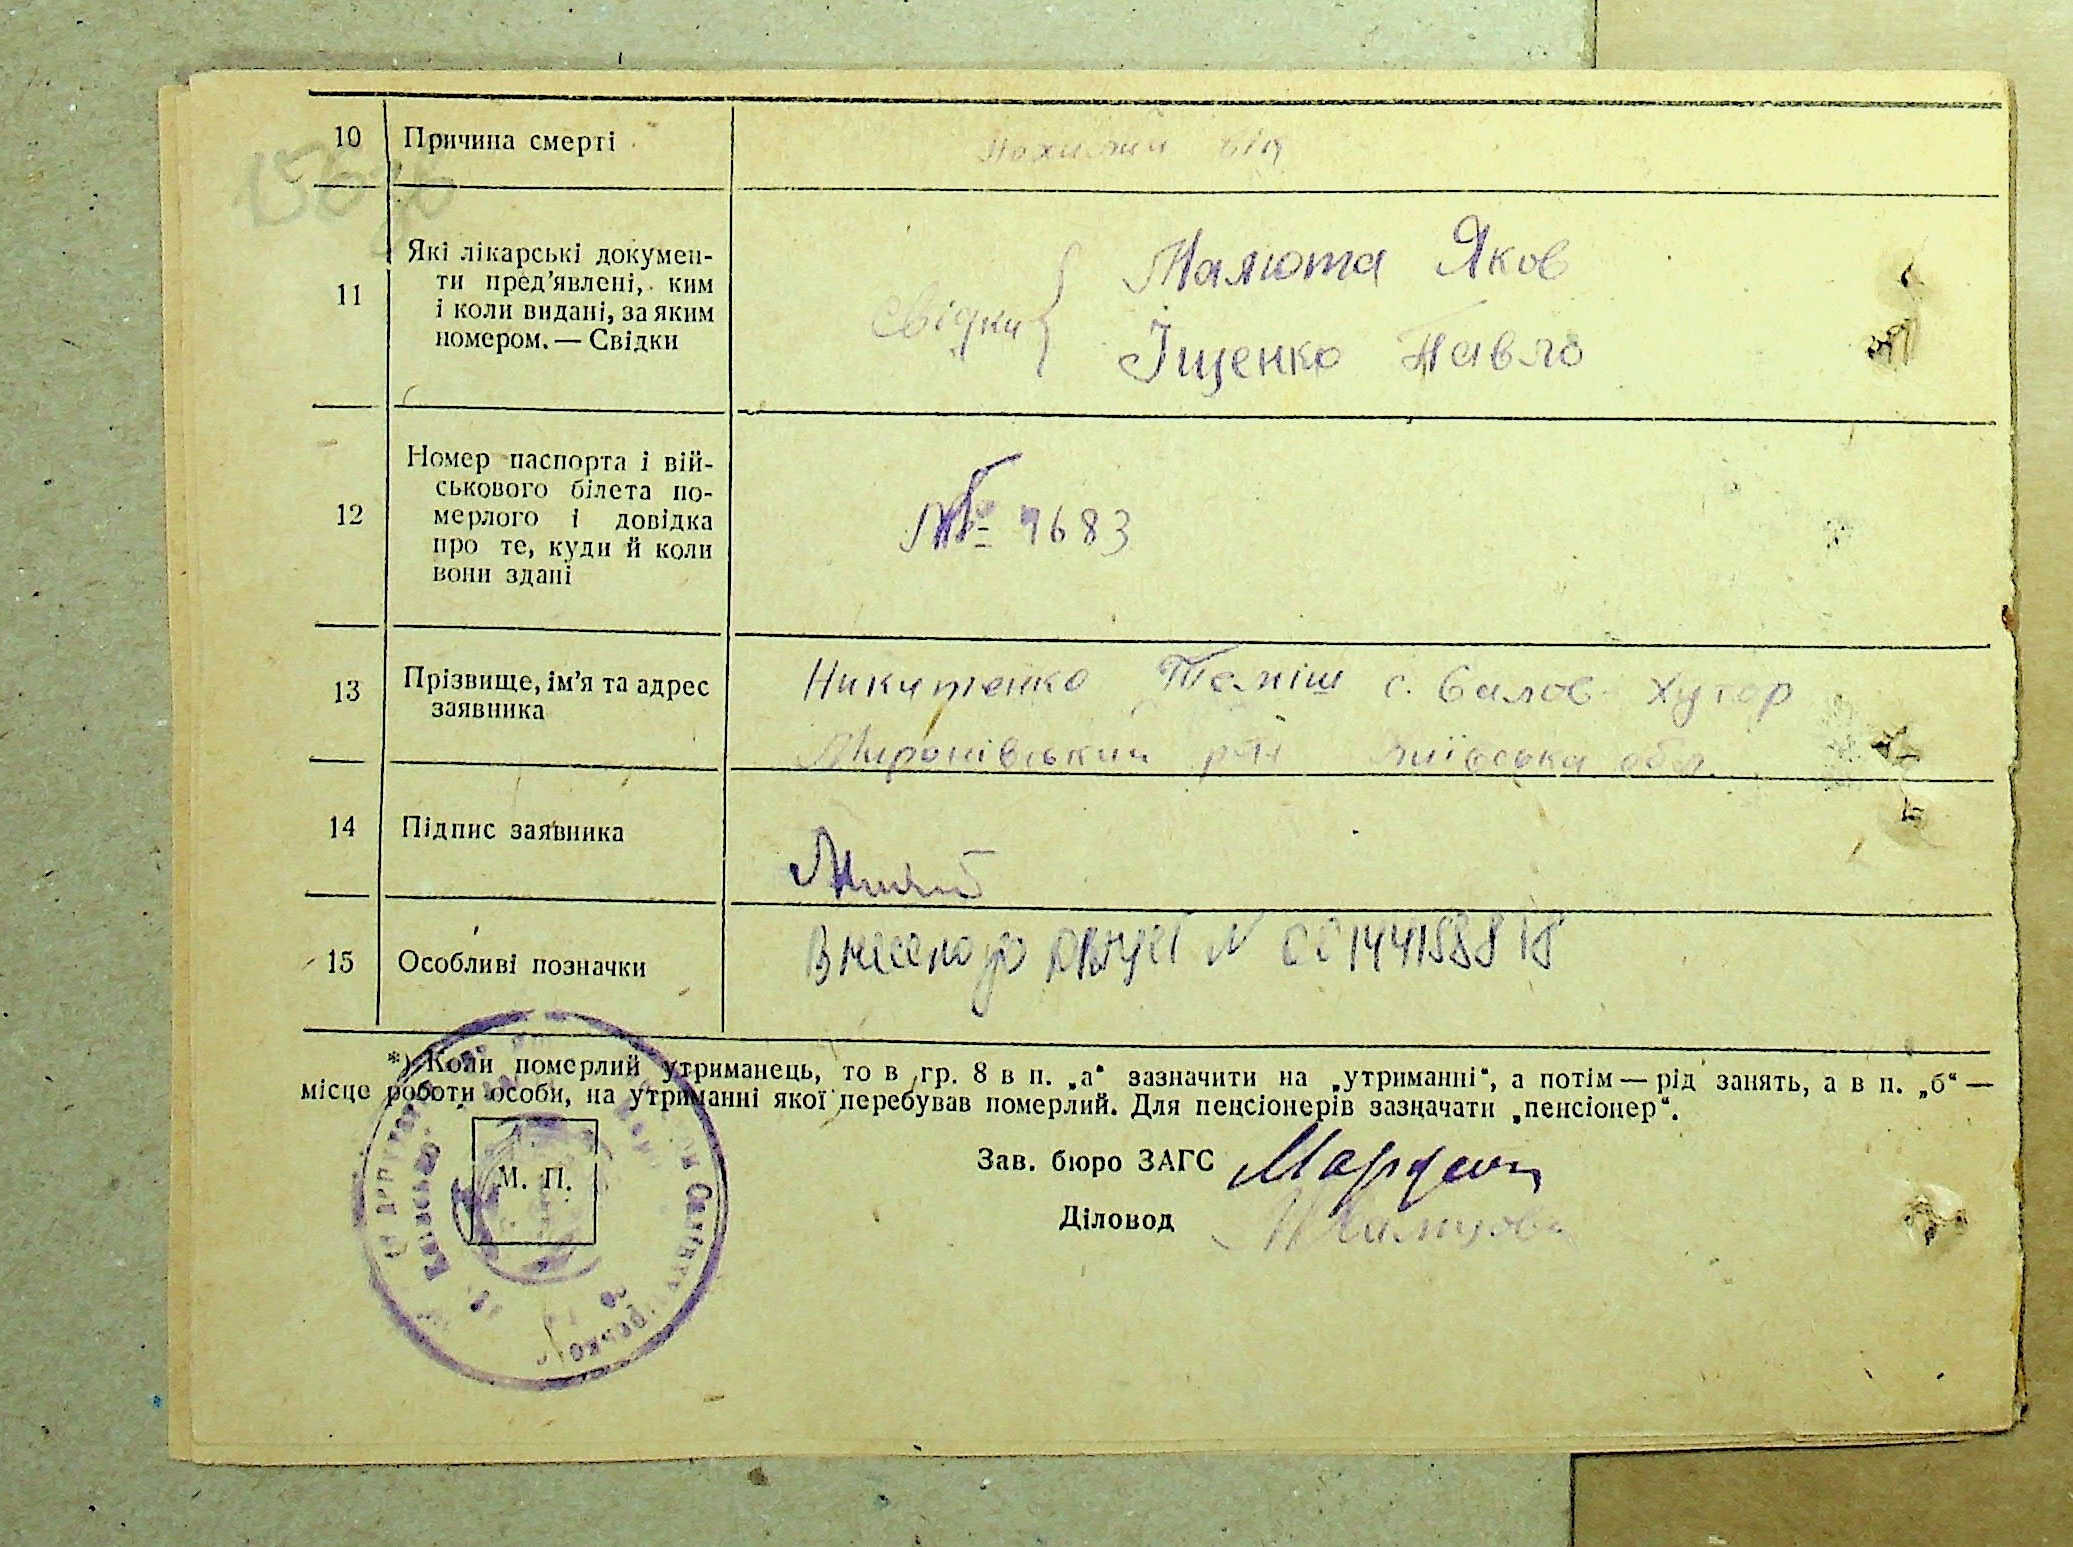 10 Причина смерті похилий вік
11 Які лікарські докумен-
ти пред'явлені, ким
і коли видані, за яким
номером. — Свідки
Свідки { Малюта Яков
Іщенко Павло
12 Номер паспорта і вій-
ськового білета по-
мерлого і довідка
про те, куди й коли
вони здані
№ 7683
13 Прізвище, ім'я та адрес
заявника
Никитенко с. Хутор
Миронівський р-н Київська обл.
14 Підпис заявника
15 Особливі позначки
Внесено до N 00144188818
*) Коли померлий утриманець, то в гр. 8 в п. „а“ зазначити на „утриманні“, а потім — рід занять, а в п. „б“ —
місце роботи особи, на утриманні якої перебував померлий. Для пенсіонерів зазначати „пенсіонер“.
М. П.
Зав. бюро ЗАГС
Діловод